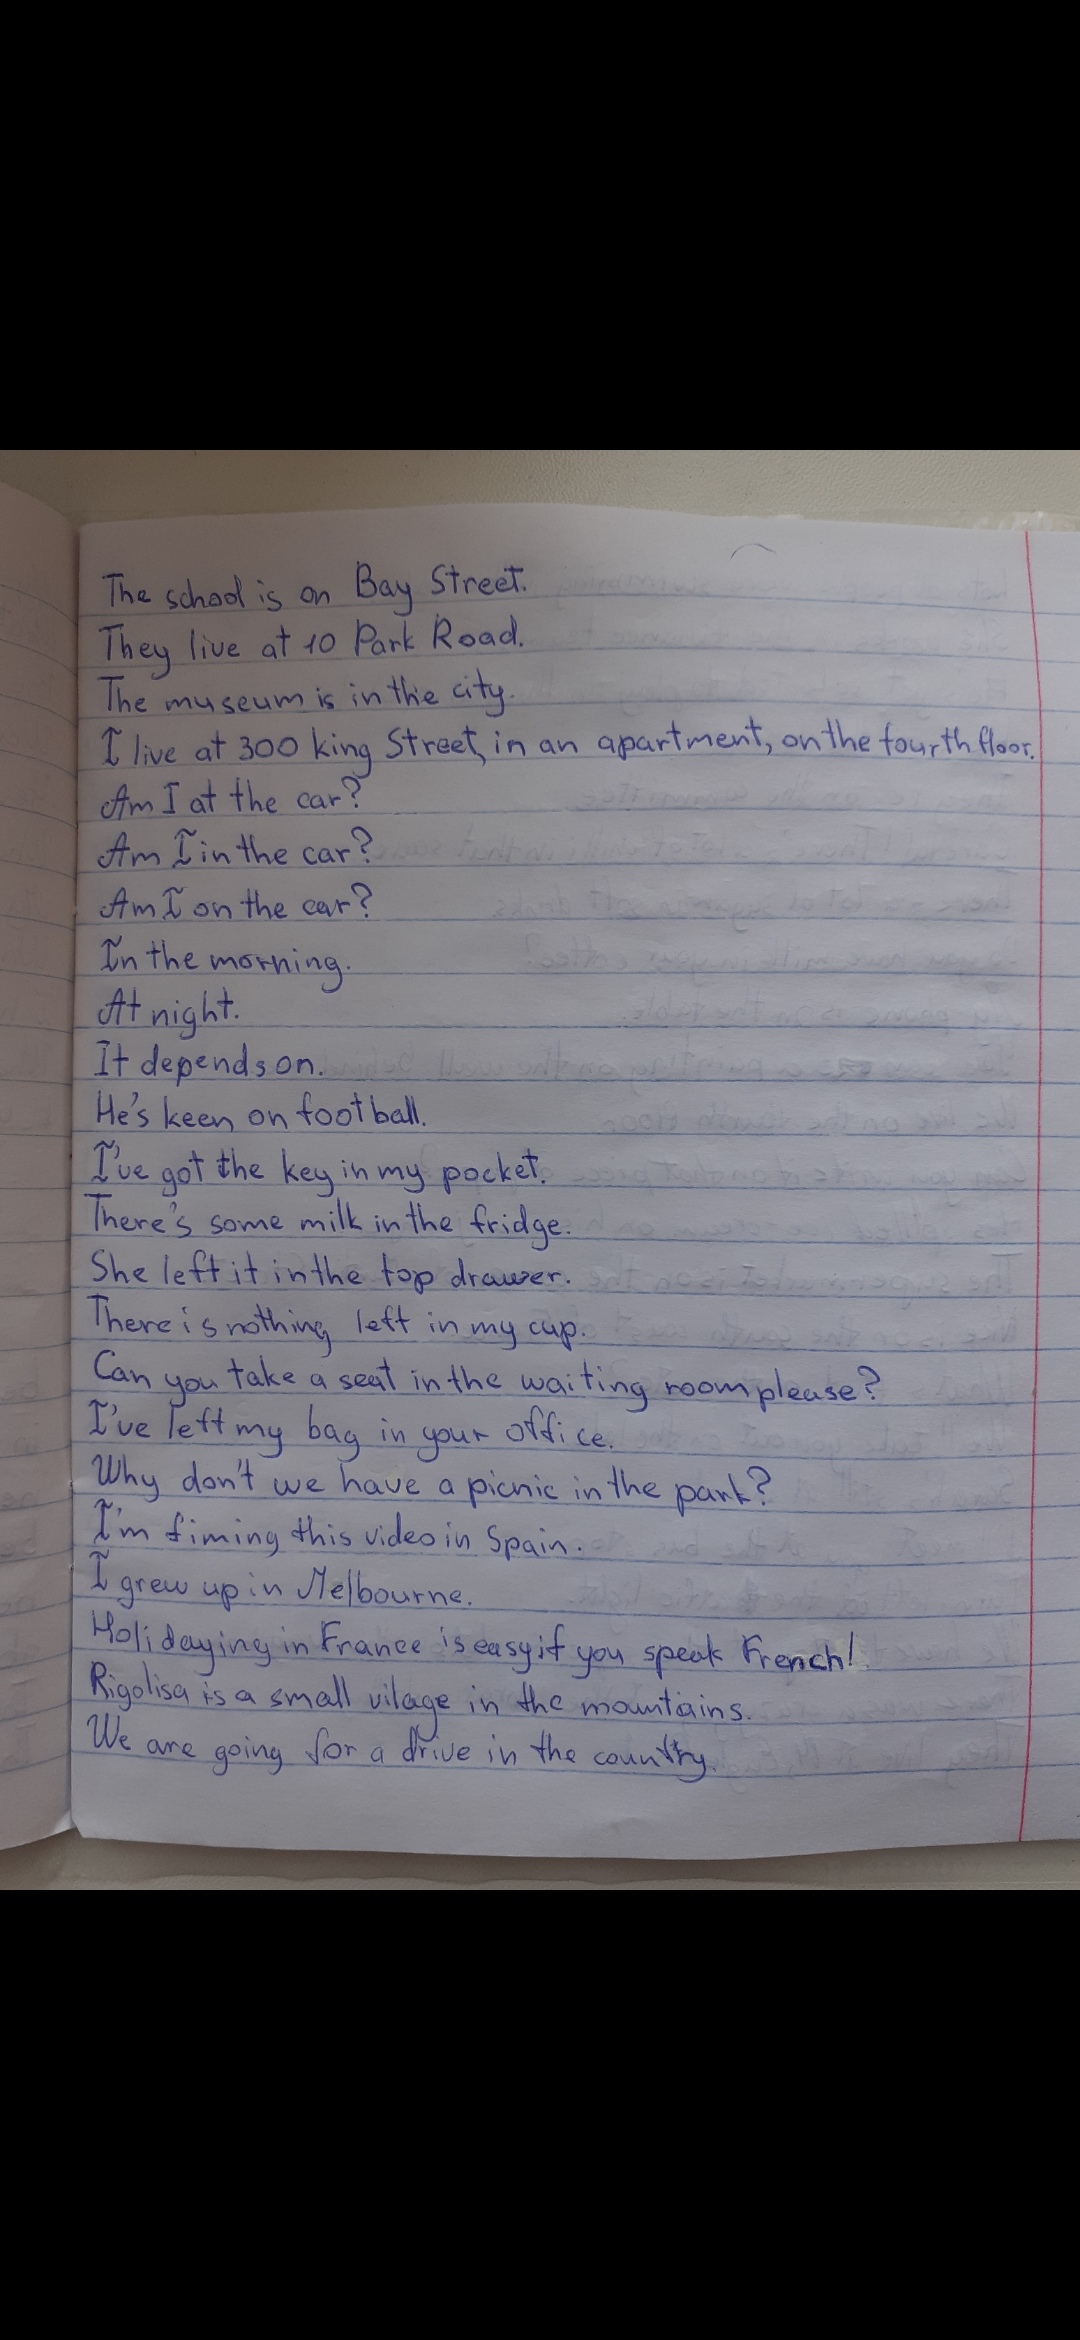 The school is on Bay Street.
They live at 10 Park Road.
The museum is in the city.
I live at 300 king Street, in an apartment, on the fourth floor.
Am I at the car?
Am I in the car?
Am I on the car?
In the morning.
At night.
It depends on.
He's keen on football.
I've got the key in my pocket.
There's some milk in the fridge.
She left it in the top drawer.
There is nothing left in my cup.
Can you take a seat in the waiting room please?
I've left my bag in your office.
Why don't we have a picnic in the park?
I'm fiming this video in Spain.
I grew up in Melbourne.
Holidaying in France is easy if you speak French!
Rigolisa is a small vilage in the mountains.
We are going for a drive in the country.